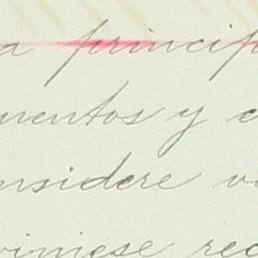 n princip
mentos y c
nsidere v
viniese rec